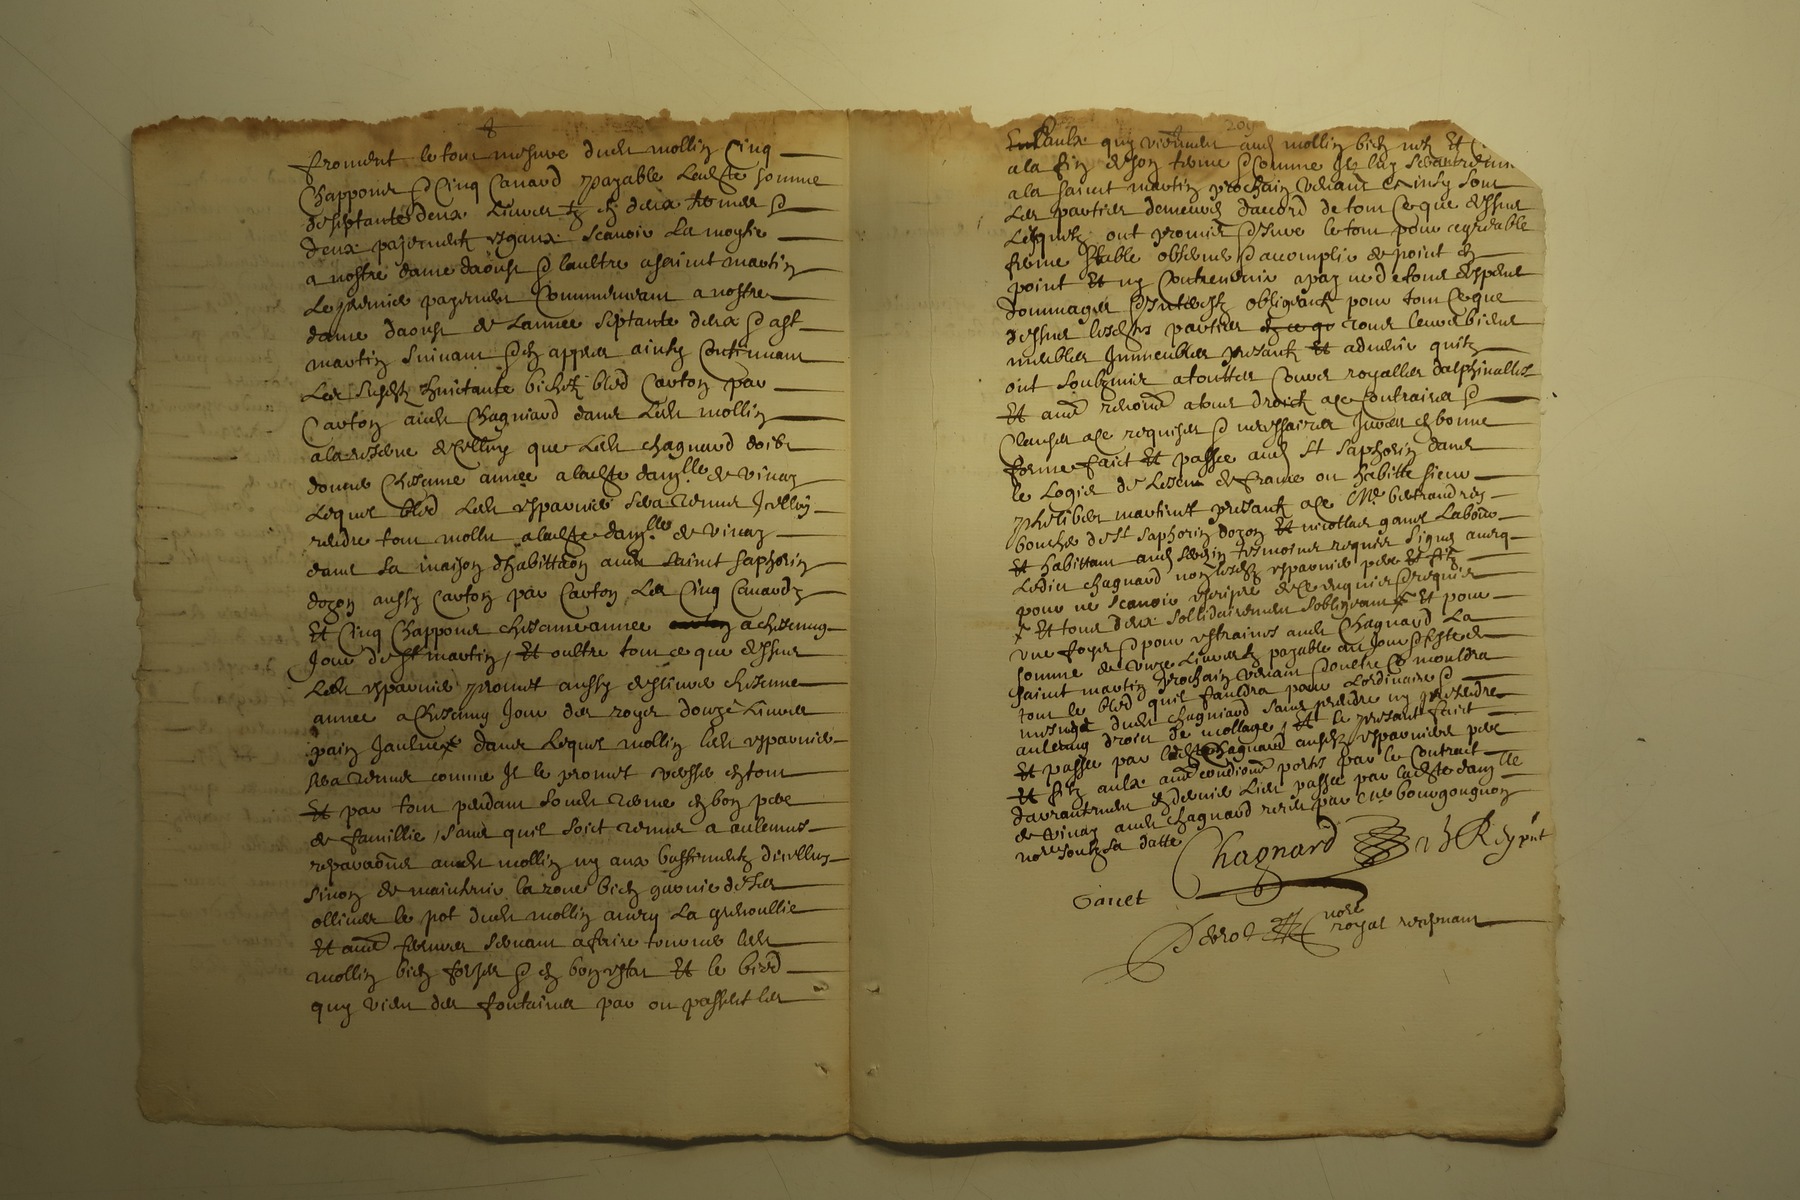 froment le tout mesure dudit mollin Cinq
Chappons & Cinq Canard payable ladicte somme
de septante deux Livres en deux termes &
deux payements esgaux scavoir La moytie
a nostre dame daoust & laultre a saint martin
Le premier payement Commencant a nostre
dame daoust de Lannee septante deux & a st
martin suivant & en appres ainsy Continuant
Les susdits huictante bichetz bled Carton par
Carton audit Chagniard dans Ledit mollin
a la reserve de Celluy que Ledit Chagnard doibt
donner Chescune annee a ladicte damlle de vinay
Lequel bled Ledit esparvier sera tenu Icelluy
rendre tout mollu a ladicte damlle de vinay
dans sa maison dhabittaon audit saint saphorin
dozon aussy Carton par Carton Les Cinq Canardz
Et Cinq Chappons chescune annee a chescung
Jour de st martin, Et oultre tout ce que dessus
Ledit esparvier promet aussy deslivrer chescune
annee a Chescung Jour des roys douze Livres
pain Jaulne dans Lequel mollin ledit esparvier
sera tenu comme Il le promet verser en tout
Et par tout pendant sondit terme en bon pere
de famillie, sans quil soict tenu a aulcunes
reparaons audit mollin ny aux bastiments dicelluy
sinon de maintenir la roue bien garnie de ses
ollives le pot dudit mollin avecq La grenoullie
Et aues ferrures servant a faire tourner ledit
mollin bien forses & en bon estat Et le bied
quy vient des fontaines par ou passent les
209
Eaulx quy viennent audit mollin bien net Et
a la fin de son terme & comme Il luy sera
a la saint martin prochain venant Et ainsy sont
Les parties demeures daccord de tout Ce que dessus
Lesquels ont promis & Jure le tout pour agreable
ferme stable observer & accomplir de point en
point Et ny Contrevenir a payne de tous despens
dommages & Interestz obligeantz pour tout Ce que
dessus lesdites parties tous leurs biens
meubles Immeubles presantz Et advenir quilz
ont soubzmis a touttes Cours royalles dalphinalles
Et aues renonce a tous droictz a Ce Contraires &
Clauses a Ce requises & necessaires Jurees en bonne
forme faict Et passe audit st saphorin dans
le Logis de Lescu de france ou habitte sieur
phelibert martinet presantz a Ce Me bertrandrey
boucher de st saphorin dozon Et nicollas ganet Labour
Et habittant audit serezin tesmoins requis signes avecq
Ledict chagnard non lesdits esparvier pere Et filz
pour ne scavoir escripre de Ce enquis & requis
Et tous deux sollidairement sobligeant Et pour
une foys & pour estraines audit Chagnard La
somme de unze Livres payable au Jour & feste de
saint martin prochain venant & oultre Ce mouldra
tout le bled quil fauldra pour Lordinaire &
mesnage dudit chagniard sans prendre ny pretendre
aulcung droict de mollage, Et le presant faict
Et passe par ledit Chagnard ausdits esparviers pere
Et filz aulx aues conditions portes par le Contract
davrantement en dernier Lieu passe par ladicte damlle
de vinay audit chagnard receu par Me bourgongnon
nore soubz sa datte
Chagnard B Rey pnt
Ganet
nore
royal recepvant